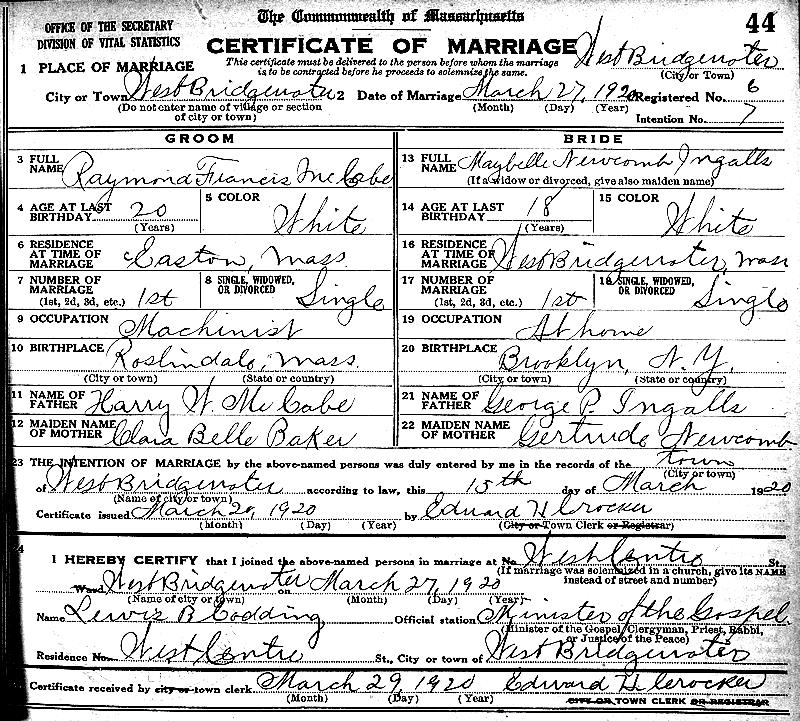 The Commonwealth of Massachusetts
44
OFFICE OF THE SECRETARY
DIVISION OF VITAL STATISTICS
CERTIFICATE OF MARRIAGE
West Bridgewater
(City or Town)
This certificate must be delivered to the person before whom the marriage
is to be contracted before he proceeds to solemnize the same.
1 PLACE OF MARRIAGE
City or Town West Bridgewater 2 Date of Marriage March 27, 1920 Registered No. 6
(Do not enter name of village or section of city or town) (Month) (Day) (Year)
Intention No. 7
GROOM
3 FULL NAME Raymond Francis McCabe
4 AGE AT LAST BIRTHDAY 20 (Years) 5 COLOR White
6 RESIDENCE AT TIME OF MARRIAGE Easton, Mass.
7 NUMBER OF MARRIAGE (1st, 2d, 3d, etc.) 1st 8 SINGLE, WIDOWED, OR DIVORCED Single
9 OCCUPATION Machinist
10 BIRTHPLACE Roslindale, Mass.
(City or town) (State or country)
11 NAME OF FATHER Harry W. McCabe
12 MAIDEN NAME OF MOTHER Clara Belle Baker
BRIDE
13 FULL NAME Maybelle Newcomb Ingalls
(If a widow or divorced, give also maiden name)
14 AGE AT LAST BIRTHDAY 18 (Years) 15 COLOR White
16 RESIDENCE AT TIME OF MARRIAGE West Bridgewater, Mass
17 NUMBER OF MARRIAGE (1st, 2d, 3d, etc.) 1st 18 SINGLE, WIDOWED, OR DIVORCED Single
19 OCCUPATION At home
20 BIRTHPLACE Brooklyn, N.Y.
(City, or town) (State or country)
21 NAME OF FATHER George P. Ingalls
22 MAIDEN NAME OF MOTHER Gertrude Newcomb
23 THE INTENTION OF MARRIAGE by the above-named persons was duly entered by me in the records of the town
(City or town)
of West Bridgewater according to law, this 15th day of March 1920
(Name of city or town)
Certificate issued March 20, 1920 by Edward H Crocker
(Month) (Day) (Year) (City or Town Clerk or Registrar)
24 I HEREBY CERTIFY that I joined the above-named persons in marriage at No. West Centre St.,
(If marriage was solemnized in a church, give its NAME instead of street and number)
Ward West Bridgewater on March 27, 1920
(Name of city or town) (Month) (Day) (Year)
Name Lewis B Codding Official station Minister of the Gospel
(Minister of the Gospel, Clergyman, Priest, Rabbi, or Justice of the Peace)
Residence No. West Centre St., City or town of West Bridgewater
Certificate received by city or town clerk March 29, 1920 Edward H Crocker
(Month) (Day) (Year) CITY OR TOWN CLERK OR REGISTRAR